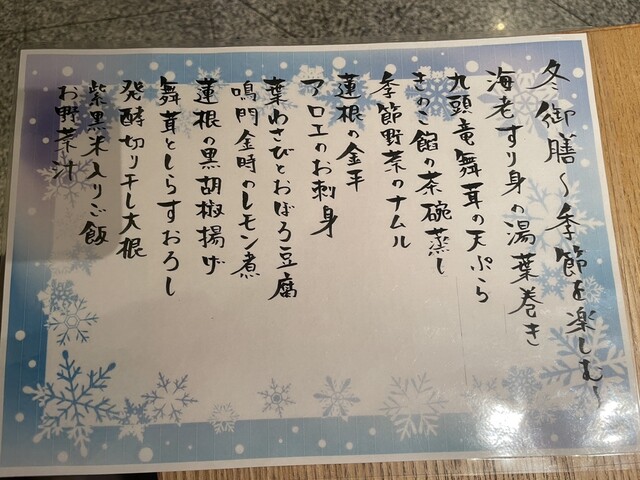 冬御膳〜季節を楽しむ〜
海老すり身の湯葉巻き
九頭竜舞茸の天ぷら
きのこ餡の茶碗蒸し
季節野菜のナムル
蓮根の金平
アロエのお刺身
葉わさびとおぼろ豆腐
鳴門金時のレモン煮
蓮根の黒胡椒揚げ
舞茸としらすおろし
発酵切り干し大根
紫黒米入りご飯
お野菜汁